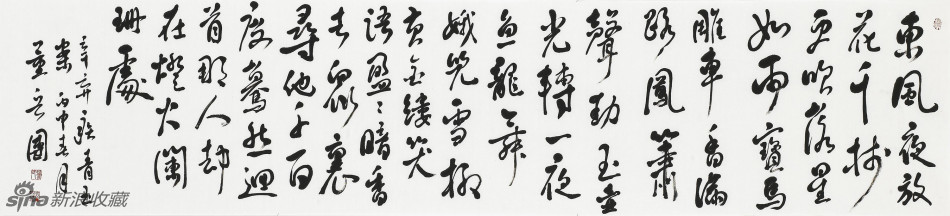 東風夜放
花千樹
更吹落星
如雨寶馬
雕車香滿
路鳳簫
聲動玉壺
光轉一夜
魚龍舞
蛾兒雪柳
黃金縷笑
語盈〻暗香
去眾裏
尋他千百
度驀然迴
首那人卻
在燈火闌
珊處
辛弃疾青玉
案丙申月
sina新浪收藏